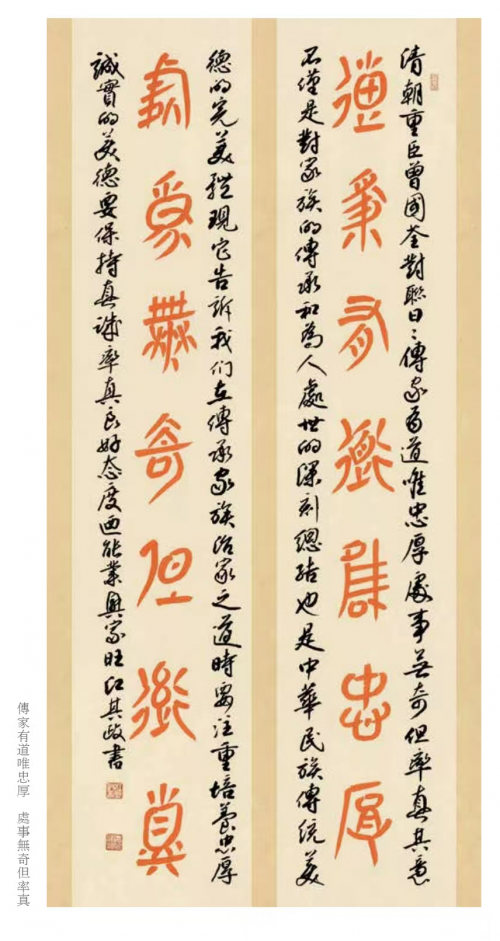 清朝重臣曾國荃對聯曰:傳家有道唯忠厚處事無奇但率真其意
傳家有道唯忠厚
不僅是對家族的傳承和為人處世的深刻總結也是中華民族傳統美
德的完美體現它告訴我们在傳承家族治家之道時要注重培養忠厚
處事無奇但率真
誠實的美德要保持真誠率真良好态度能業興家旺江其政書
傳家有道唯忠厚 處事無奇但率真